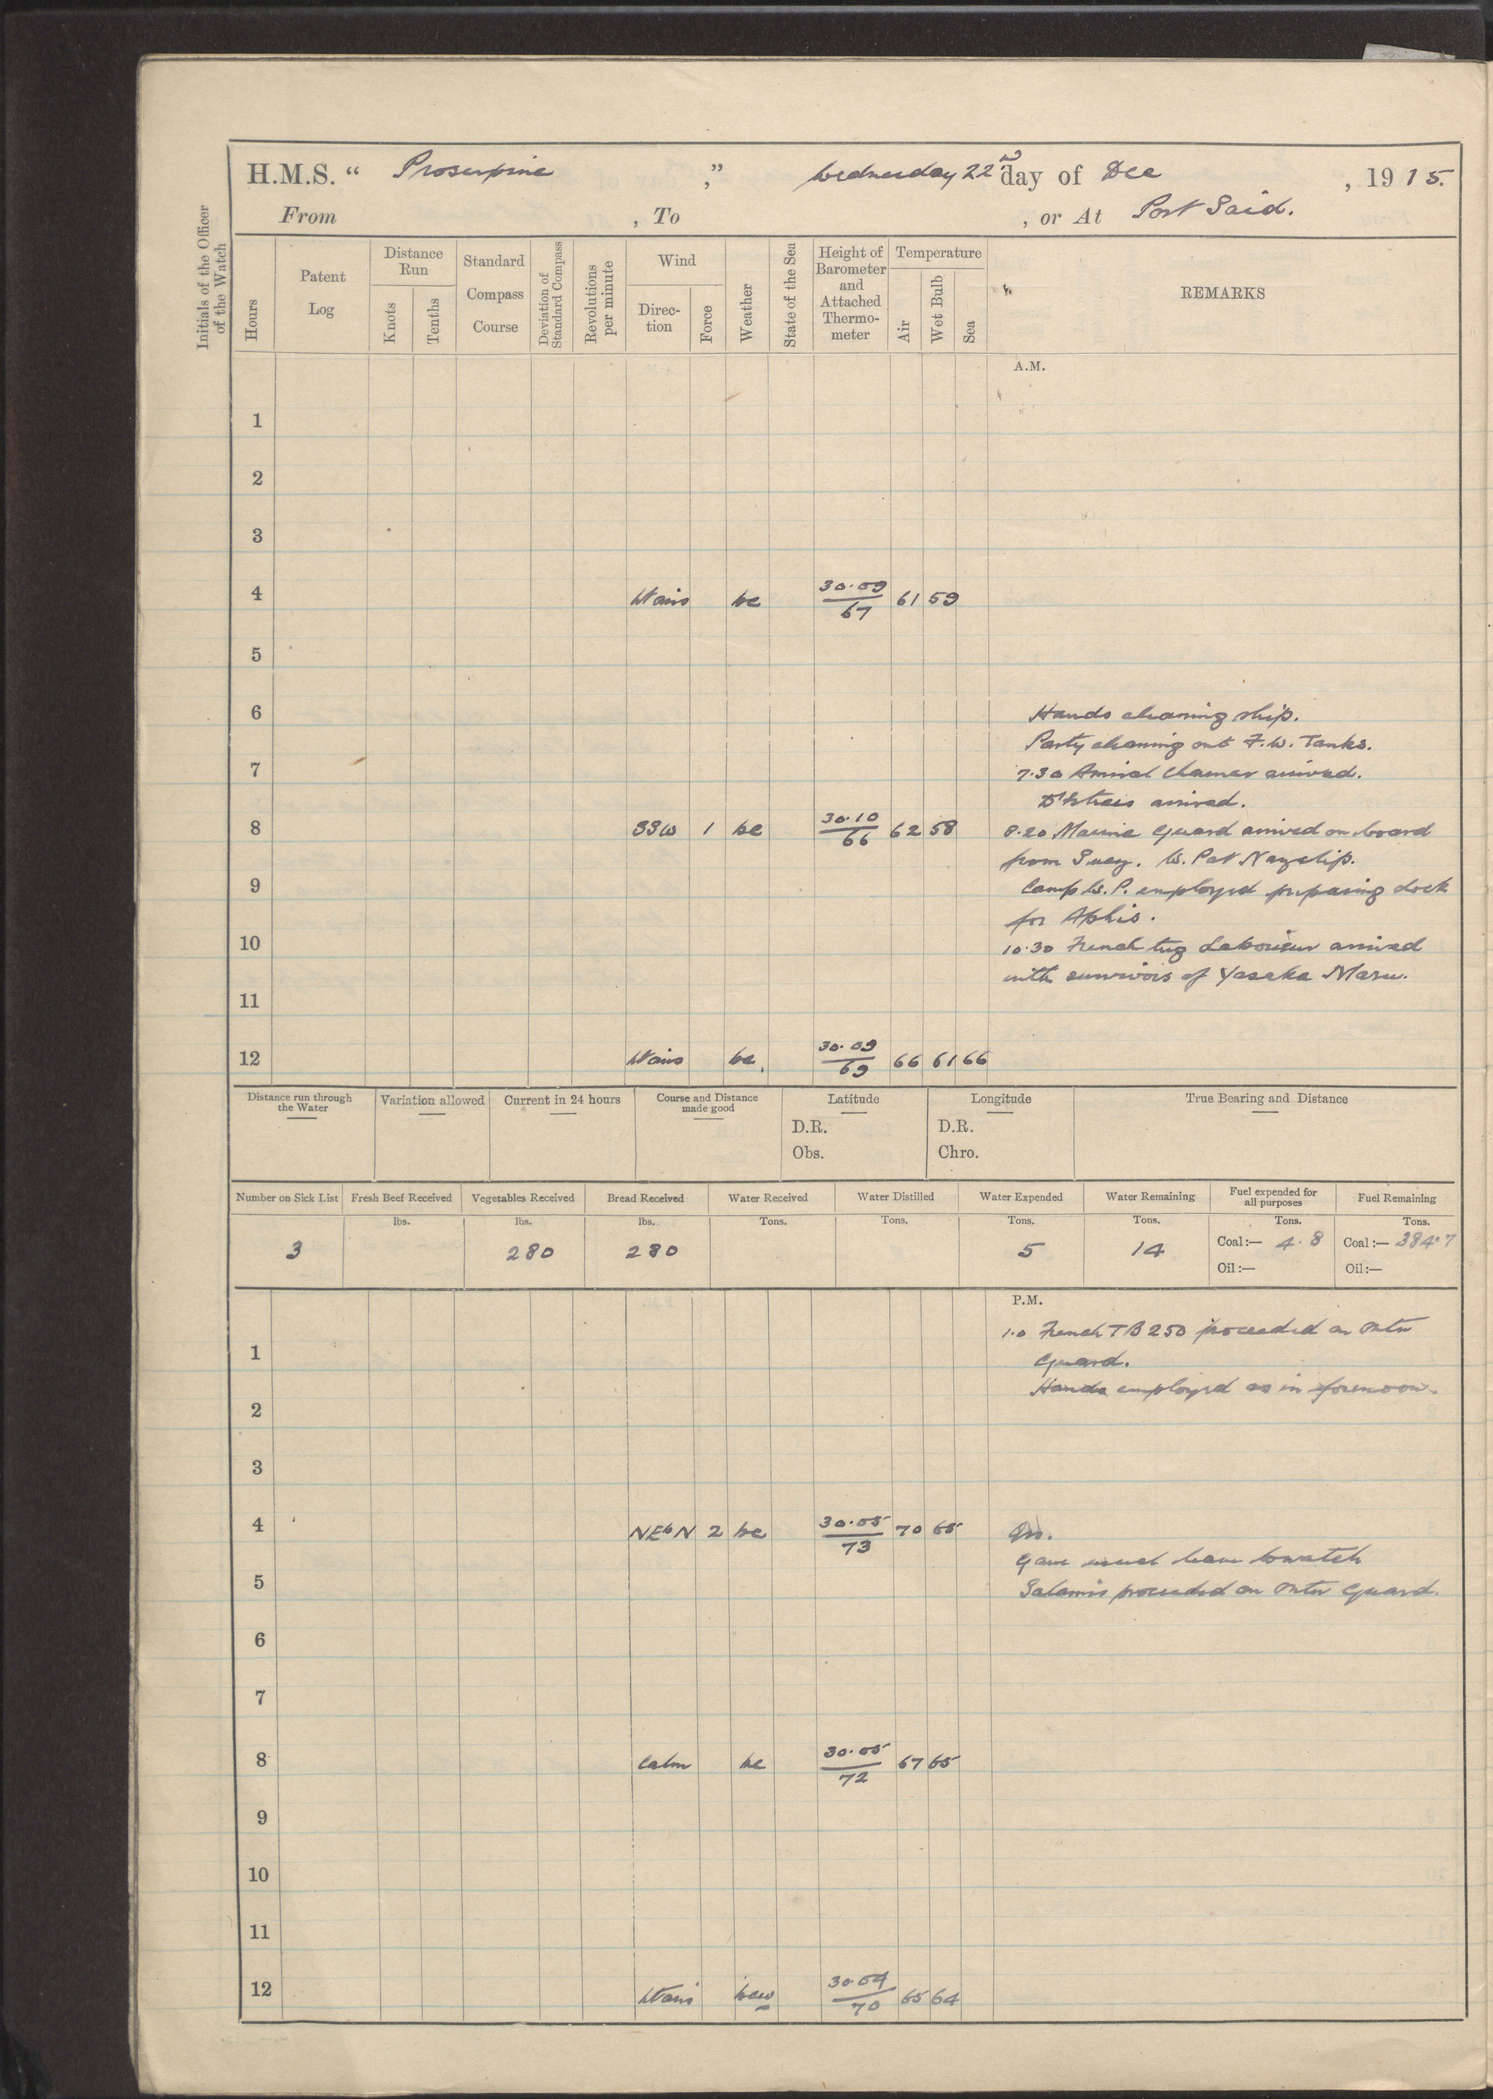 H.M.S. “ Proserpine ,” Wednesday 22nd day of Dec , 1915.
From , To , or At Port Said.
Initials of the Officer of the Watch
Hours
Patent Log
Distance Run
Knots
Tenths
Standard Compass Course
Deviation of Standard Compass
Revolutions per minute
Wind
Direction
Force
Weather
State of the Sea
Height of Barometer and Attached Thermometer
Temperature
Air
Wet Bulb
Sea
REMARKS
A.M.
1
2
3
4 Wairs bc 30.09 67 61 59
5
6 Hands cleaning ship.
Party cleaning out F.W. Tanks.
7 7.30 Amiral Charner arrived.
D'Estrees arrived.
8 SSW 1 bc 30.10 66 62 58 8.20 Marine Guard arrived on board
from Suez. W. Pat Nazelip.
9 Camp W.P. employed preparing dock
for Aphis.
10 10.30 French tug Laborieux arrived
with survivors of Yasaka Maru.
11
12 Wairs bc 30.09 69 66 61 66
Distance run through the Water
Variation allowed
Current in 24 hours
Course and Distance made good
Latitude
D.R.
Obs.
Longitude
D.R.
Chro.
True Bearing and Distance
Number on Sick List Fresh Beef Received Vegetables Received Bread Received Water Received Water Distilled Water Expended Water Remaining Fuel expended for all purposes Fuel Remaining
lbs. lbs. lbs. Tons. Tons. Tons. Tons. Tons. Tons.
3 280 280 5 14 Coal:— 4.8 Coal:— 384.7
Oil:— Oil:—
P.M.
1.0 French TB 250 proceeded on Outer
1 Guard.
Hands employed as in forenoon.
2
3
4 NEbN 2 bc 30.05 73 70 65
Gave usual leave to watch
5 Salamis proceeded on Outer Guard.
6
7
8 Calm bc 30.05 72 67 65
9
10
11
12 Wairs bcw 30.04 70 65 64